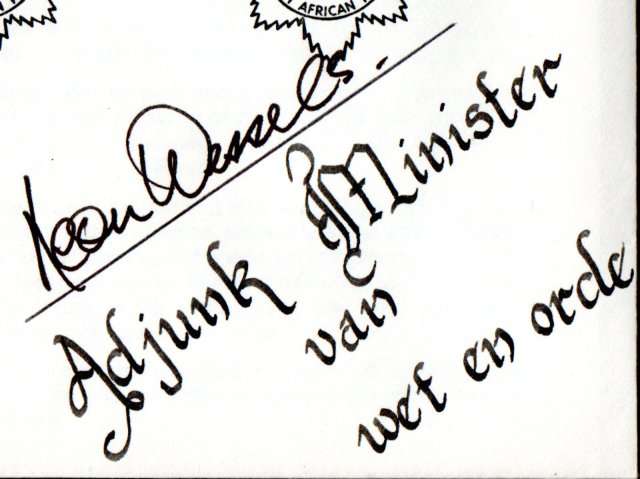 AFRICAN
Leon Wessels.
Adjunk Minister
van
wet en orde